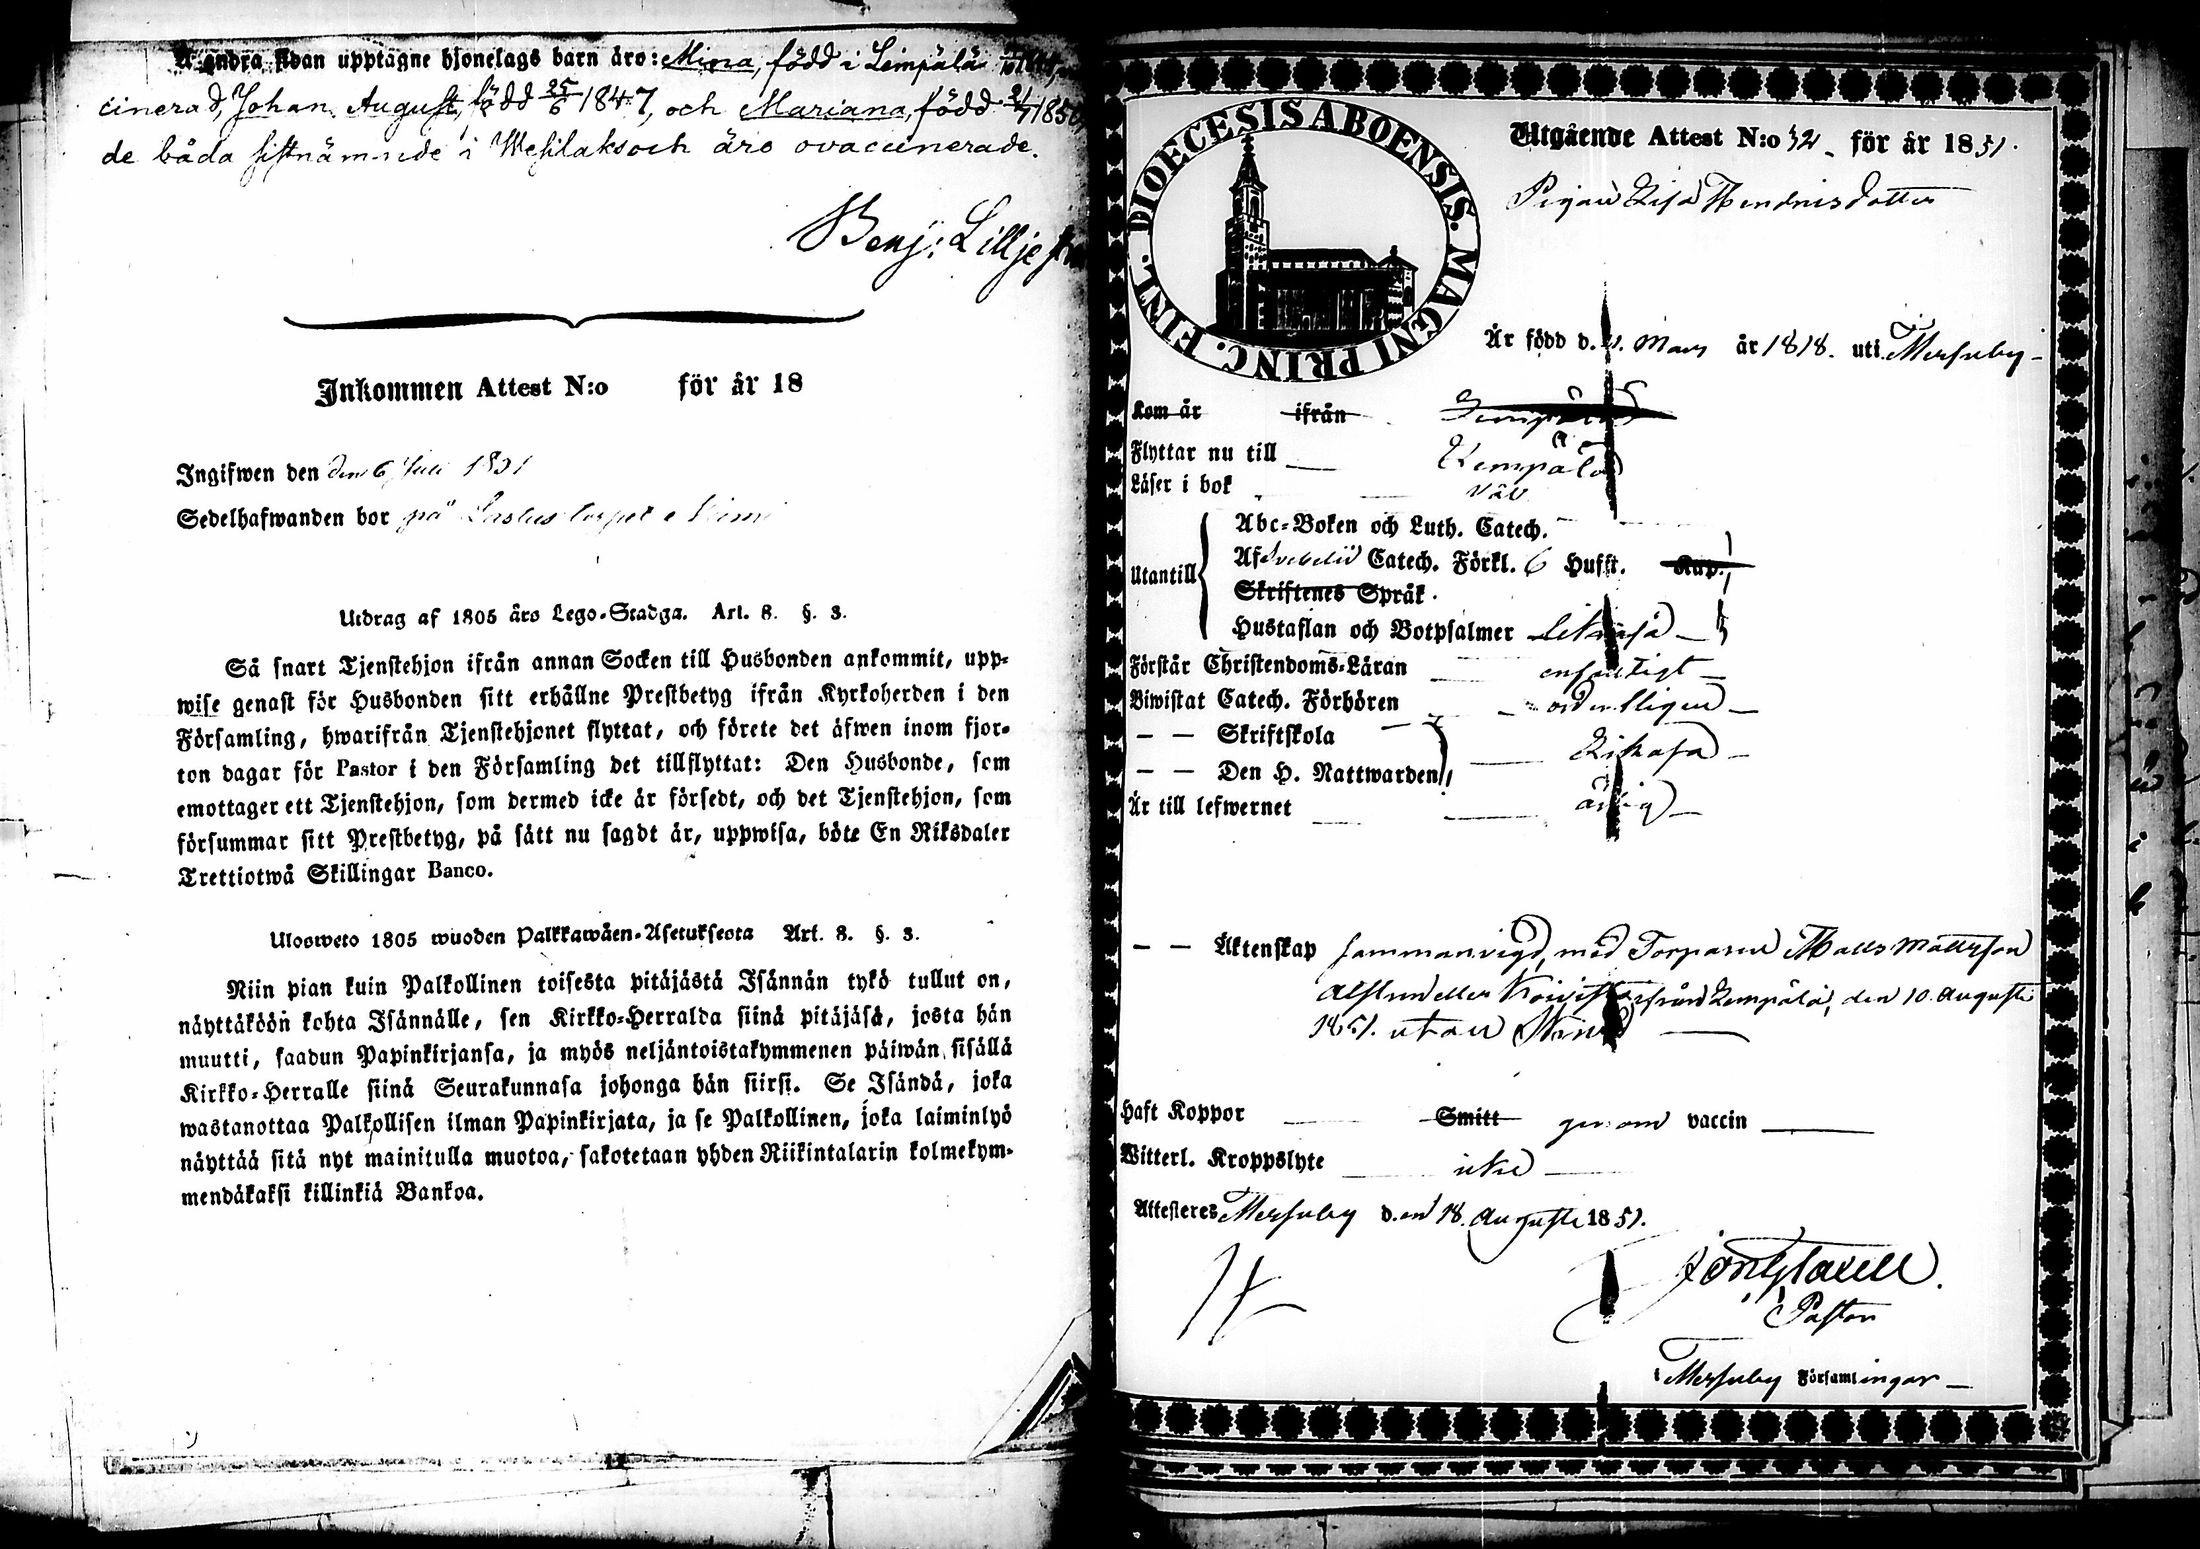 Å andra sidan upptagne hjonelags barn äro: Mina, född i Lempälä
cinerad, Johan August, född 25/6 1847, och Mariana, född 21/7 1850,
de båda sistnämnde i Wesilaks och äro ovaccinerade.
Benj: Lillje
Inkommen Attest N:o för år 18
Ingifwen den den 6 Juli 1851
Sedelhafwanden bor på
Utdrag af 1805 års Lego-Stadga. Art. 8. §. 3.
Så snart Tjenstehjon ifrån annan Socken till Husbonden ankommit, upp-
wise genast för Husbonden sitt erhållne Prestbetyg ifrån Kyrkoherden i den
Församling, hwarifrån Tjenstehjonet flyttat, och förete det äfwen inom fjor-
ton dagar för Pastor i den Församling det tillflyttat: Den Husbonde, som
emottager ett Tjenstehjon, som dermed icke är försedt, och det Tjenstehjon, som
försummar sitt Prestbetyg, på sätt nu sagdt är, uppwisa, böte En Riksdaler
Trettiotwå Skillingar Banco.
Ulosweto 1805 wuoden Palkkawäen-Asetuksesta Art. 8. §. 3.
Niin pian kuin Palkollinen toisesta pitäjästä Isännän tykö tullut on,
näyttäköön kohta Isännälle, sen Kirkko-Herralda siinä pitäjäsä, josta hän
muutti, saadun Papinkirjansa, ja myös neljäntoistakymmenen päiwän sisällä
Kirkko-Herralle siinä Seurakunnasa johonga hän siirsi. Se Isändä, joka
wastanottaa Palkollisen ilman Papinkirjata, ja se Palkollinen, joka laiminlyö
näyttää sitä nyt mainitulla muotoa, sakotetaan yhden Riikintalarin kolmekym-
mendäkaksi killinkiä Bankoa.
DIOECESIS ABOENSIS. MAGNI PRINC. FINL.
Utgående Attest N:o 32 för år 1851.
Pigan Lisa Hendricsdotter
Är född d. Mars år 1818. uti Mersuby
Kom år ifrån Lempälä
Flyttar nu till Lempälä
Läser i bok väl
Abc-Boken och Luth. Catech.
Utantill Af Svebelii Catech. Förkl. 6 Hufst. Kap.
Skriftenes Språk
Hustaflan och Botpsalmer likaså
Förstår Christendoms-Läran enfaldigt
Biwistat Catech. Förhören ordentligen
— — Skriftskola Likaså
— — Den H. Nattwarden
Är till lefwernet ärlig
— — Äktenskap sammanvigd, med Torparen Matts Mattsson
eller från Lempälä, den 10 Augusti
1851. utan
Haft Koppor Smitt genom vaccin
Witterl. Kroppslyte icke
Attesteres Mersuby d.en 18. Augusti 1851.
Pastor
i Mersuby Församlingar